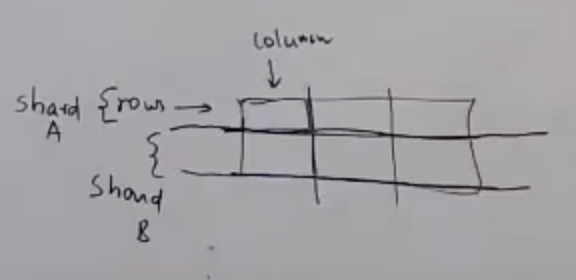 column
shard { rows →
A
{
Shard
B